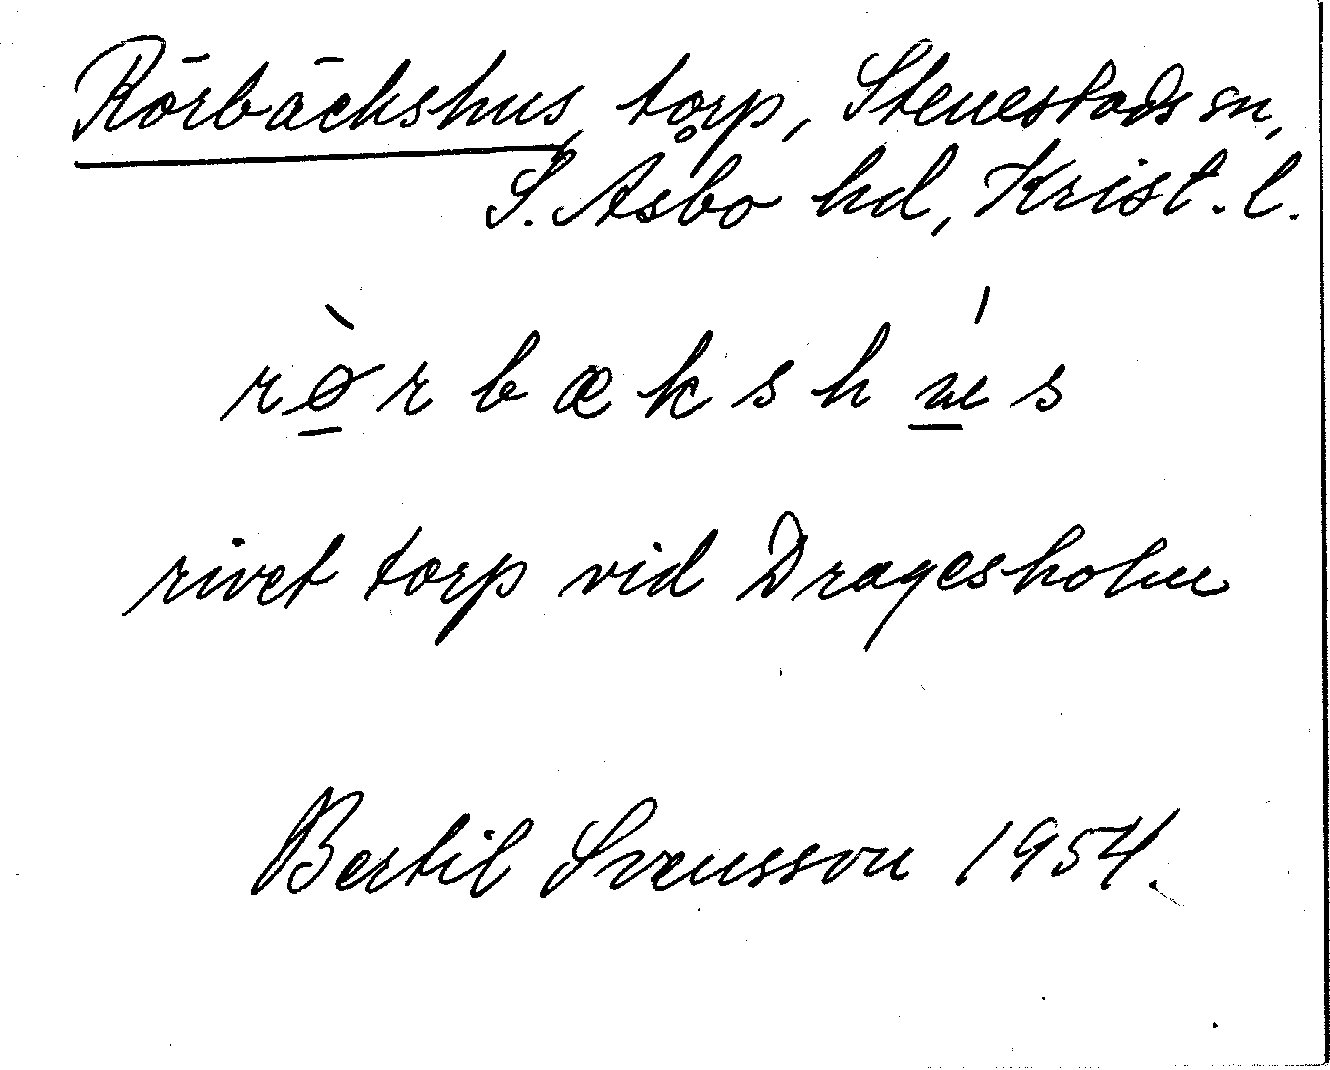 Rörbäckshus, torp, Stenestads sn,
S. Åsbo hd, Krist. l.
rø̀rbækshús
rivet torp vid Dragesholm
Bertil Svensson 1954.